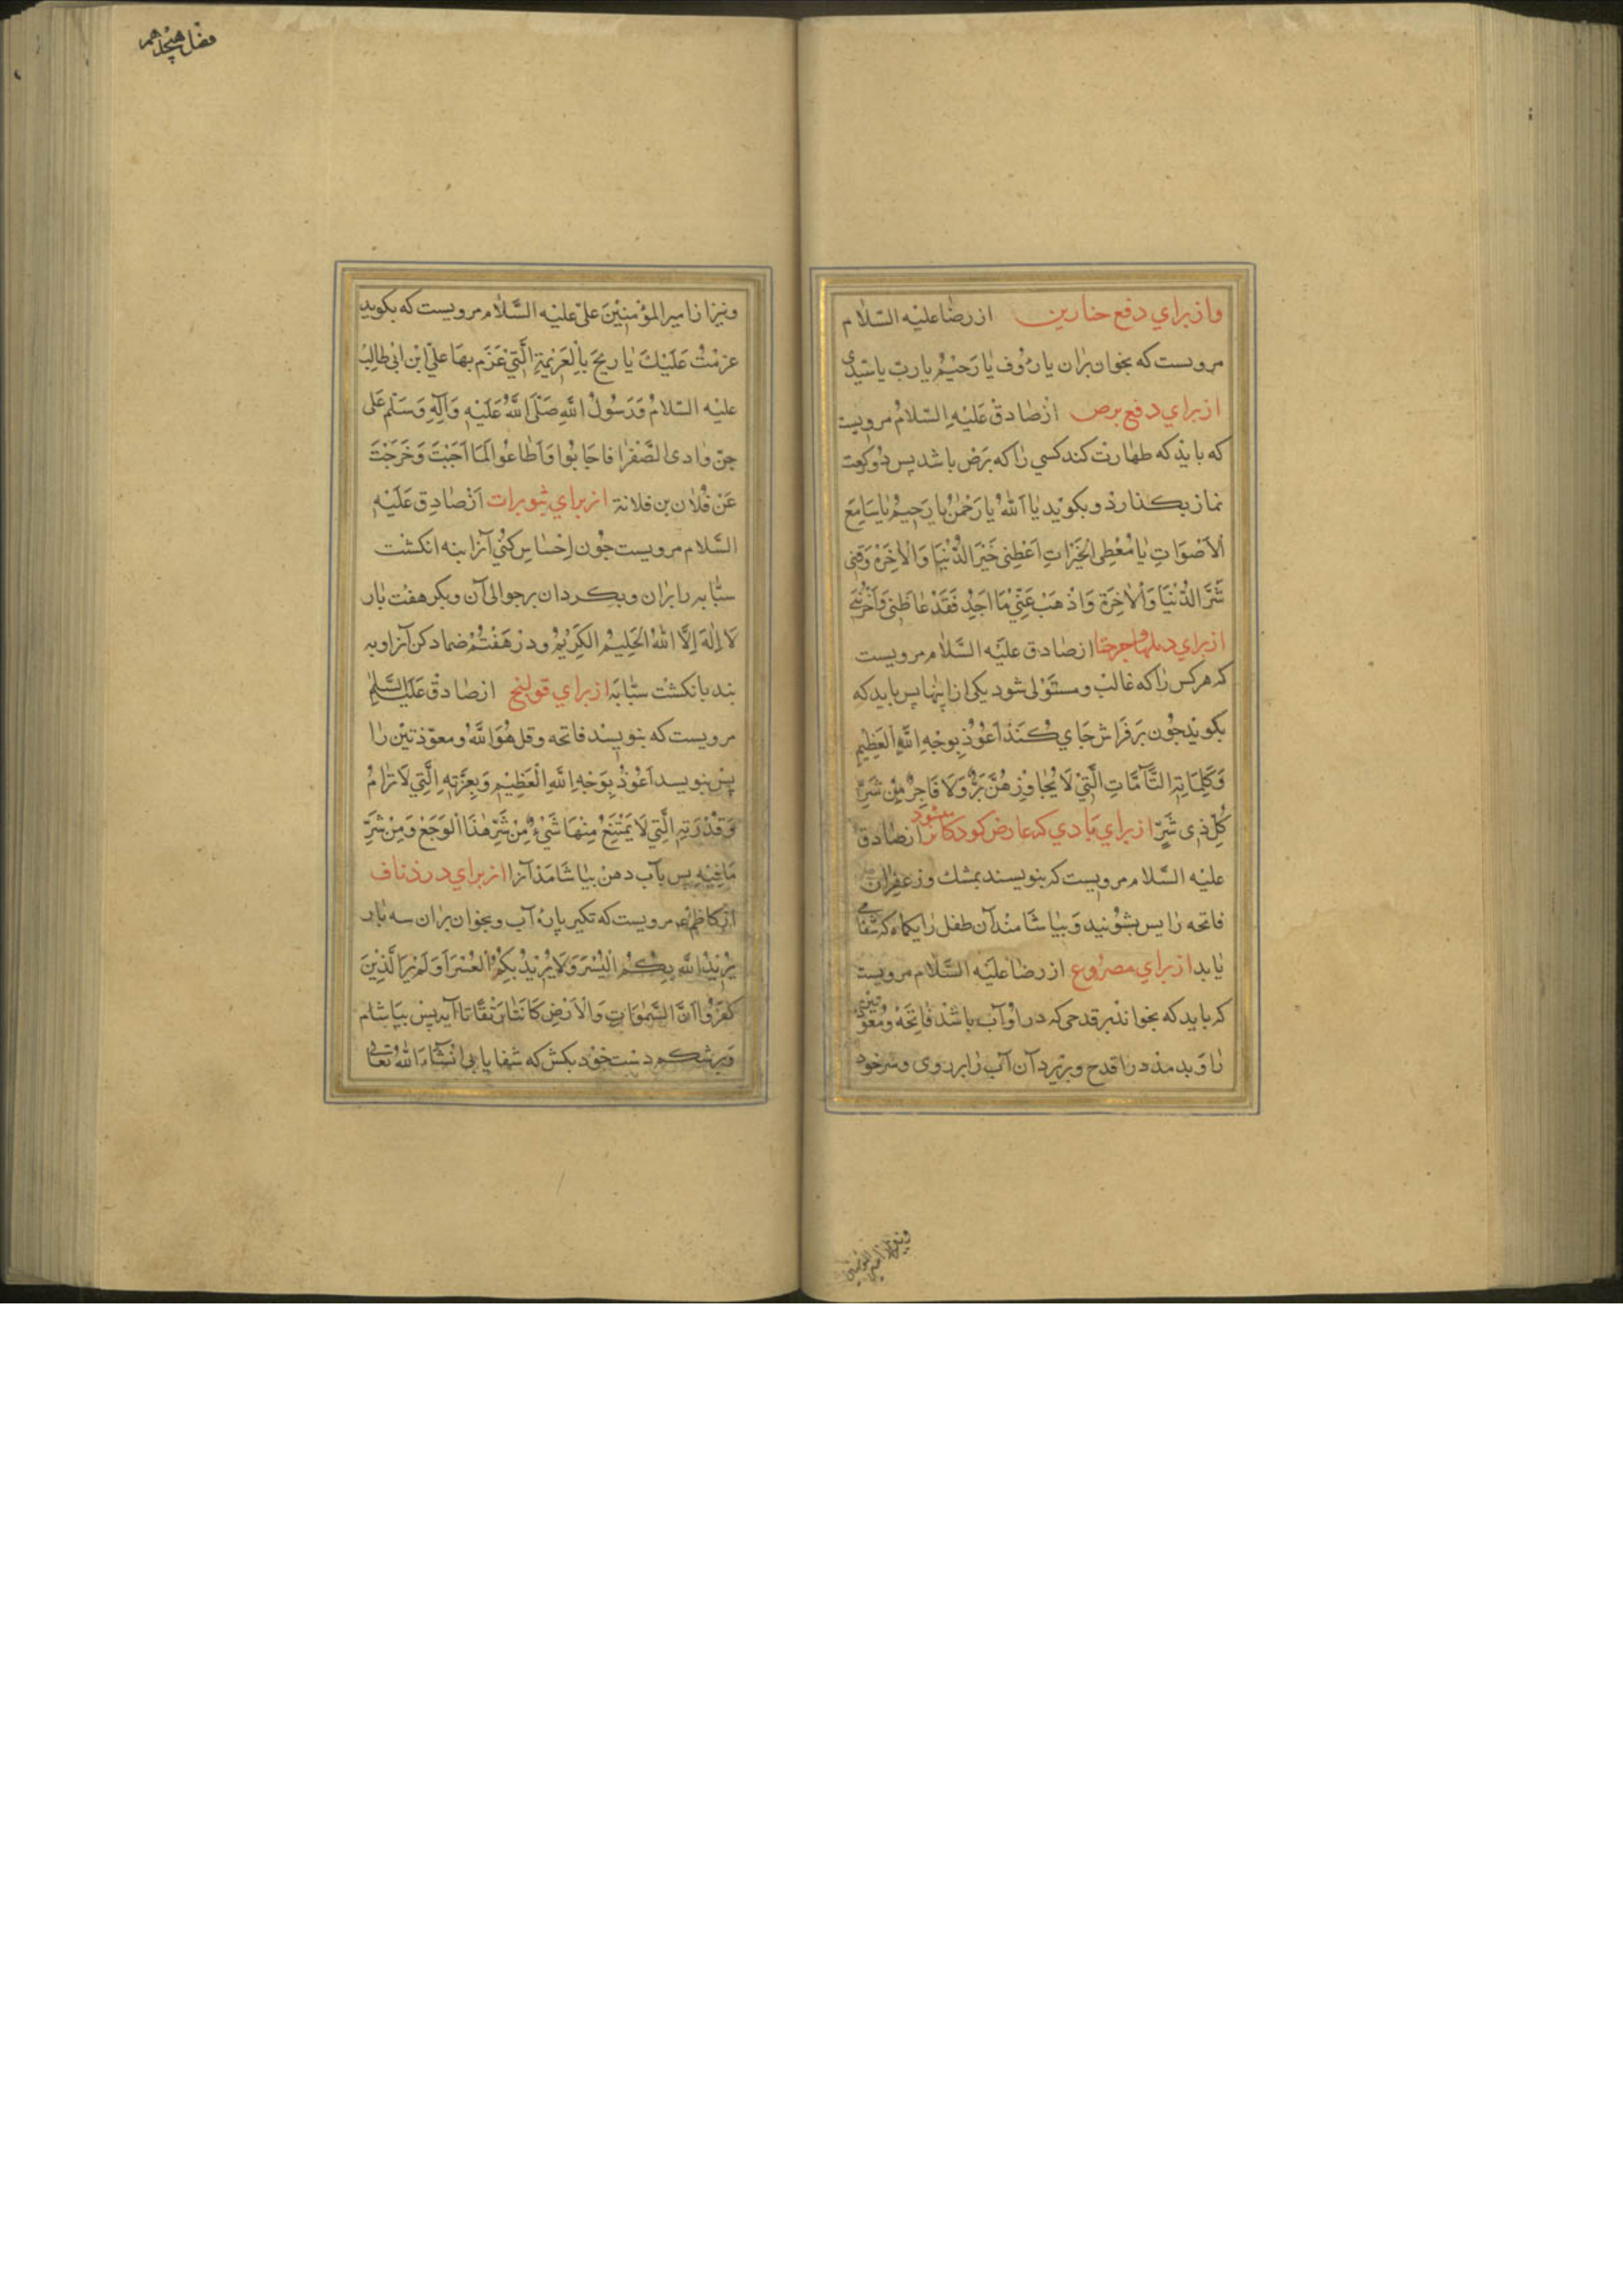 وازبراي دفع خنازير ازرضا عليه السلام
مرويست كه بخوان بران يا رؤوف يا رحيم يا رب يا سيدي
ازبراي دفع برص از صادق عليه السلام مرويست
كه بايد كه طهارت كند كسي را كه برص باشد پس دو ركعت
نماز بكذارد و بكويد يا الله يا رحمن يا رحيم يا سامع
الاصوات يا معطى الخيرات اعطنى خير الدنيا والاخرة وقنى
شر الدنيا والاخرة واذهب عني ما اجد فقد غاظنى واحزننى
ازبراي دملها وجرحتا از صادق عليه السلام مرويست
كه هركس را كه غالب ومستولى شود يكى ازاينها پس بايد كه
بكويد چون بر فراش جاي كند اعوذ بوجه الله العظيم
وكلماته التامات التي لا يجاوزهن بر ولا فاجر من شر
كل ذى شر ازبراي بادي كه عارض كودكان شود از صادق
عليه السلام مرويست كه بنويسند بمشك وزعفران
فاتحه را پس بشويند و بياشامند آن طفل را يكماه كه شفا
يابد ازبراي مصروع از رضا عليه السلام مرويست
كه بايد كه بخواند بر قدحى كه در او آب باشد فاتحه ومعوذتين
را و بدمد در اقدح وبريزد آن آب را بر روى وسر خود
ونيز از امير المؤمنين
فصل هيجدهم
ونيز از امير المؤمنين على عليه السلام مرويست كه بكويد
عزمت عليك يا ريح بالعزيمة التي عزم بها علي ابن ابى طالب
عليه السلام ورسول الله صلى الله عليه وآله وسلم على
جن وادى الصفرا فاجابوا واطاعوا لما اجبت وخرجت
عن فلان بن فلانة ازبراي بثورات از صادق عليه
السلام مرويست چون احساس كني آنرا بنه انكشت
سبابه را بران وبكردان برحوالى آن وبكو هفت بار
لا اله الا الله الحليم الكريم ودر هفتم ضماد كن آنرا وبه
بند بانكشت سبابه ازبراي قولنج از صادق عليه السلام
مرويست كه بنويسند فاتحه وقل هو الله ومعوذتين را
پس بنويسد اعوذ بوجه الله العظيم وبعزته التي لا ترام
وقدرته التي لا يمتنع منها شيء من شر هذا الوجع ومن شر
ما فيه پس بآب دهن بياشامد آنرا ازبراي درد ناف
از كاظم ع مرويست كه تكير پاره آب وبخوان بران سه بار
يريد الله بكم اليسر ولا يريد بكم العسر اولم ير الذين
كفروا ان السموات والارض كانتا رتقا تا آيه پس بياشام
وبر شكم دست خود بكش كه شفا يابى انشاء الله تعالى